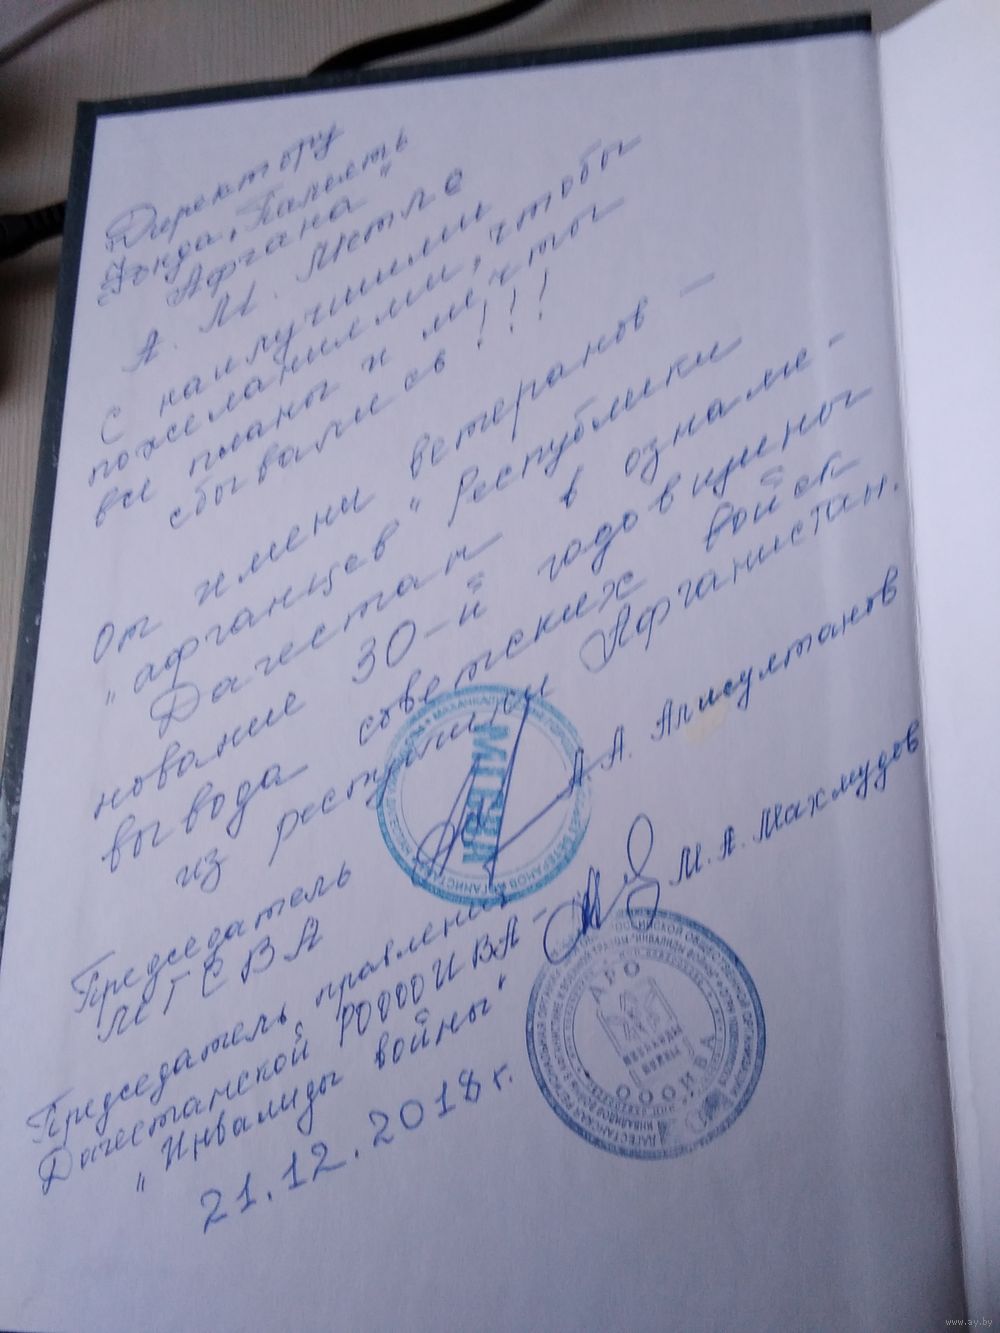 Директору
Фонда „Память
Афгана"
А. М. Метле
С наилучшими
пожеланиями, чтобы
все планы и мечты
сбывались!!!
От имени ветеранов –
„афганцев" Республики
Дагестан в ознаме-
нование 30-й годовщины
вывода советских войск
из республики Афганистан.
Председатель А.А. Аписултанов
МГСВА
Председатель правления М.А. Махмудов
Дагестанской РОООИВА-
„Инвалиды войны"
21.12.2018 г.
МГСВА
www.ay.by